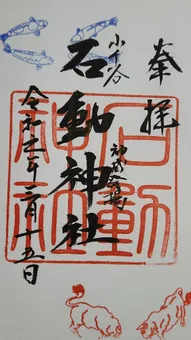 奉拝
小千谷
石動神社
令和 年三月十五日
石動
神社